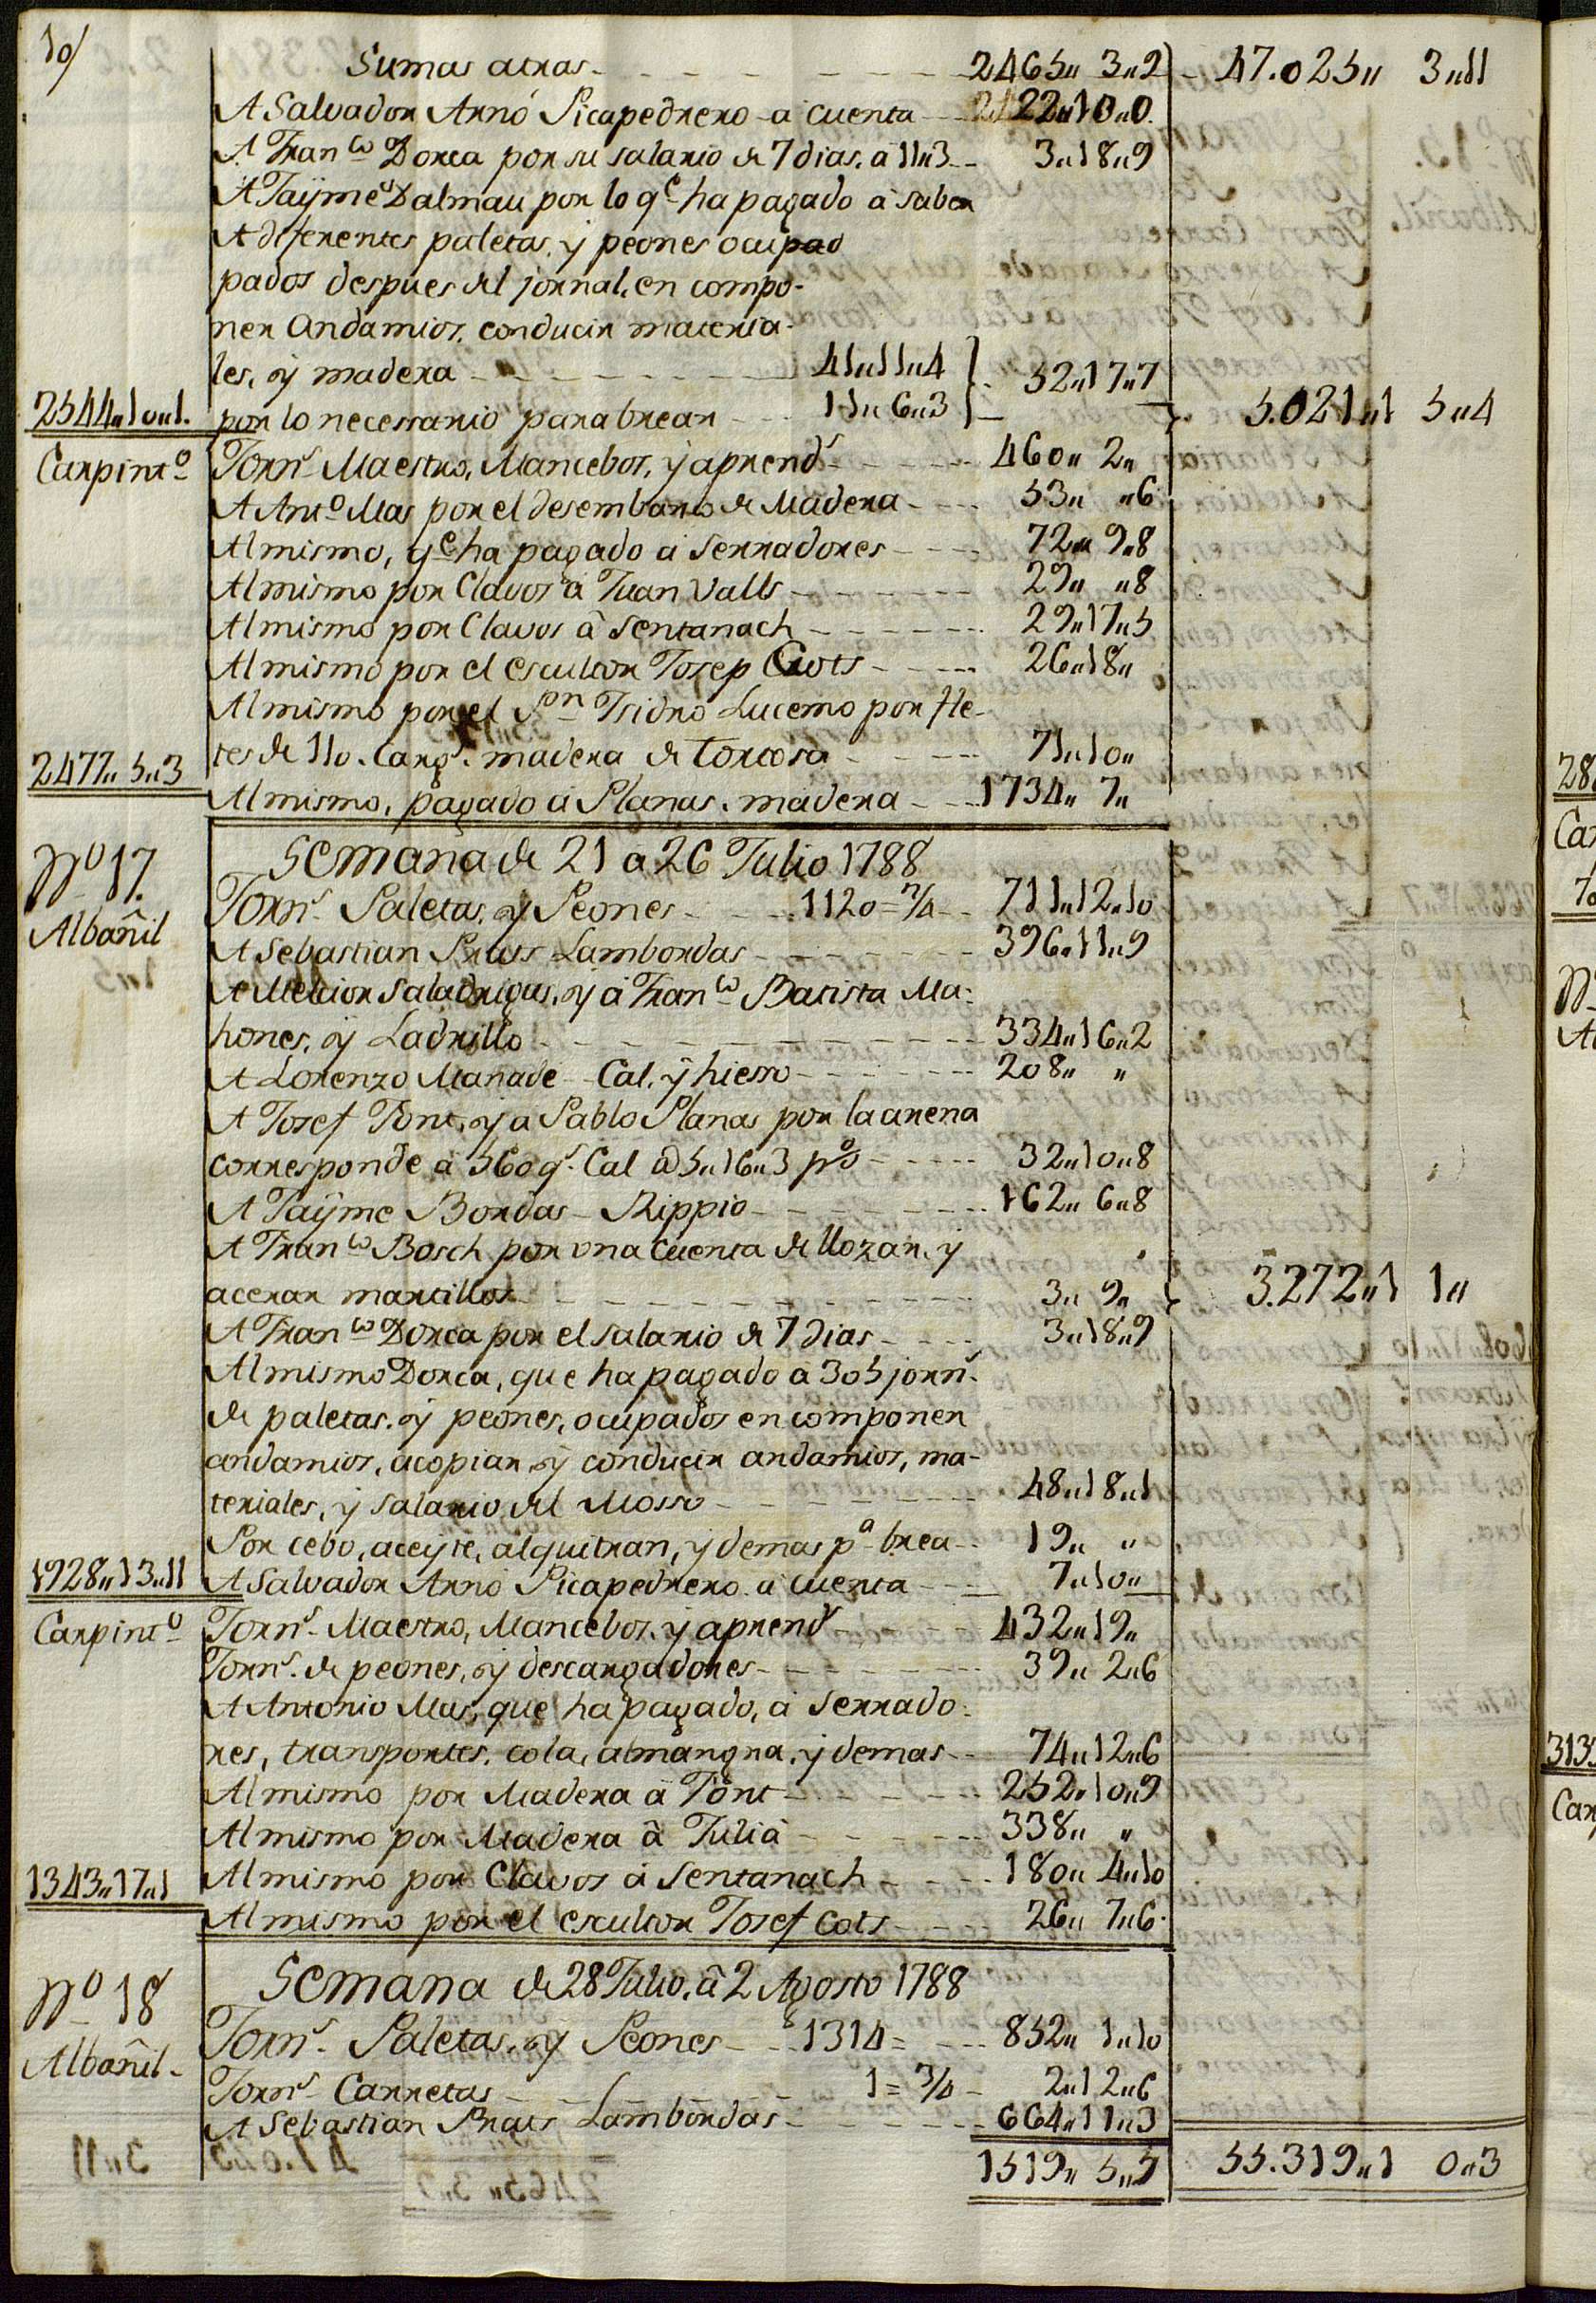 10/
Sumas atras - - - - - - - 2465" 3"9 - 47.025" 3"11
A Salvador Arnó Picapedrero a cuenta - 22"10"0.
A Fran.co Dorca por su salario de 7 dias. â 11"3 - - 3"18"9
A Jaÿme Dalmau por lo q.e ha pagado â saber
A diferentes paletas, y peones ocupad
pados despues del jornal, en compo-
ner Andamios, conducir materia-
les, y madera - - - - - - 41"11"4 } - 52"17"7
2544"10"1. por lo necessario para brear - - 11"6"3 } - 5.021"1 5"4
Carpint.o Jorn.s Maestro, Mancebos, y aprend.s - - - - 460" 2"
A Ant.o Mas por el desembarco de Madera - - - 53" "6
Al mismo, q.e ha pagado â Serradores - - - 72" 9"8
Al mismo por Clavos â Juan Valls - - - - - 29" "8
Al mismo por Clavos â Sentanach - - - - - 29"17"5
Al mismo por el escultor Josep Cots - - - 26"18"
Al mismo por el P.on Isidro Lucemo por fle-
tes de 110. Carg.s madera de Tortosa - - - - 71"10"
2477" 5"3
Al mismo, pagado â Planas. madera - - - 1734" 7"
N.o 17. Semana de 21 a 26 Julio 1788
Albañil Jorn.s Paletas, y Peones - - - 1120=3/4 - - 711"12"10
A Sebastian Prats Lambordas - - - - - - 396"11"9
A Melcior Saladrigas, y â Fran.co Batista Ma-
hones, y Ladrillo - - - - - - - - - 334"16"2
A Lorenzo Mañadé - Cal, y hiesso - - - - - 208" "
A Josef Font, y a Pablo Planas por la arena
corresponde â 560 q.s Cal â 5"16"3 p%o - - - - 32"10"8
A Jaÿme Bordas - Rippio - - - - - - 162" 6"8
A Fran.co Bosch por una cuenta de llozar, y
acerar martillos - - - - - - - - - 3" 9" } 3.272"1 1"
A Fran.co Dorca por el salario de 7 dias - - - - 3"18"9
Al mismo Dorca, que ha pagado â 305 jorn.s
de paletas, y peones, ocupados en componer
andamios, acopiar y conducir andamios, ma-
teriales, y salario del Mosso - - - - - - 48"18"1
Por cebo, aceyte, alquitran, y demas p.a brea - - 19" "
1928"13"11 A Salvador Arnó Picapedrero a cuenta - - - 7"10"
Carpint.o Jorn.s Maestro, Mancebos, y aprend.s - - - - 432"19"
Jorn.s de peones, y descargadores - - - - - - 39" 2"6
A Antonio Mas, que ha pagado, â Serrado-
res, transportes, cola, almangra, y demas - - 74"12"6
Al mismo por Madera â Font - - - - - 252"10"9
Al mismo por Madera â Juliâ - - - - - 338" "
1343"17"1 Al mismo por Clavos â Sentanach - - - - 180" 4"10
Al mismo por el escultor Josef Cots - - - - 26" 7"6.
N.o 18 Semana de 28 Julio, â 2 Agosto 1788
Albañil - Jorn.s Paletas, y Peones - - 1314= - - - 852" 1"10
Jorn.s Carretas - - - - - - - 1=3/4 - 2"12"6
A Sebastian Prats Lambordas - - - - - - 664"11"3
1519" 5"7 55.319"1 0"3